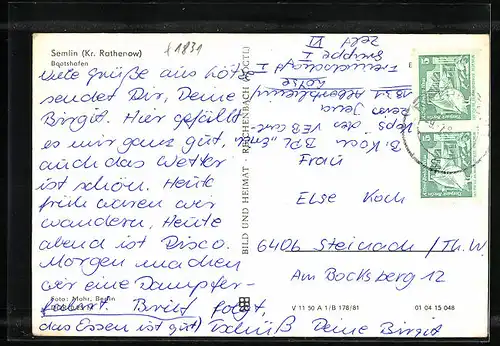 Semlin (Kr. Rathenow)
Bootshafen
1831
Viele Grüße aus Lötse
sendet Dir, Deine
Birgit. Hier gefällt
es mir ganz gut,
auch das Wetter
ist schön. Heute
früh waren wir
wandern, Heute
abend ist Disco.
Morgen machen
wir eine Dampfer-
fahrt. Brief folgt,
das Essen ist gut! Tschüß Deine Birgit
Foto: Mohr, Berlin
BILD UND HEIMAT · REICHENBACH (VOGTL)
B. Koch
des VEB Carl
Zeiss Jena
1831
Lötse
Freundschaft I
Gruppe I
Zelt VI
Frau
Else Koch
6406 Steinach/Th.W.
Am Bocksberg 12
V 11 50 A 1/B 178/81
01 04 15 048
5
5